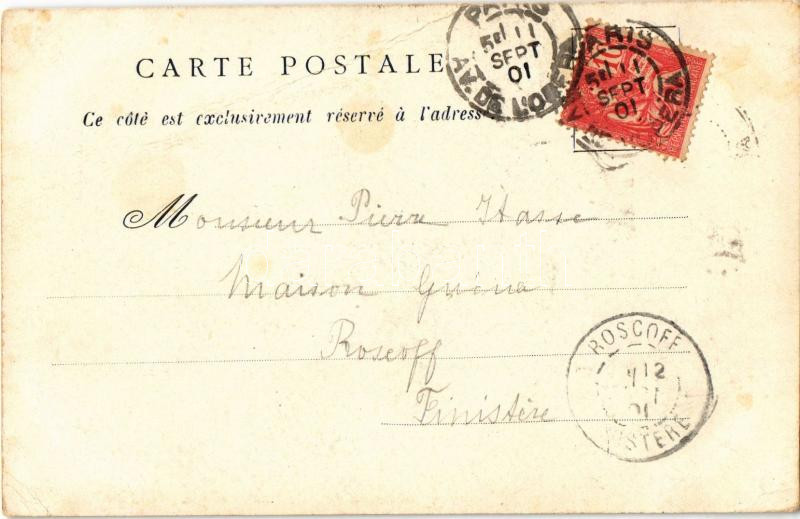 CARTE POSTALE
Ce côté est exclusivement réservé à l'adress
PARIS
5E 11
SEPT
01
AV. DE L'OPERA
PARIS
5E 11
SEPT
01
Monsieur Pierre Hasse
Maison Guéna
Roscoff
Finistère
ROSCOFF
12
01
FINISTERE